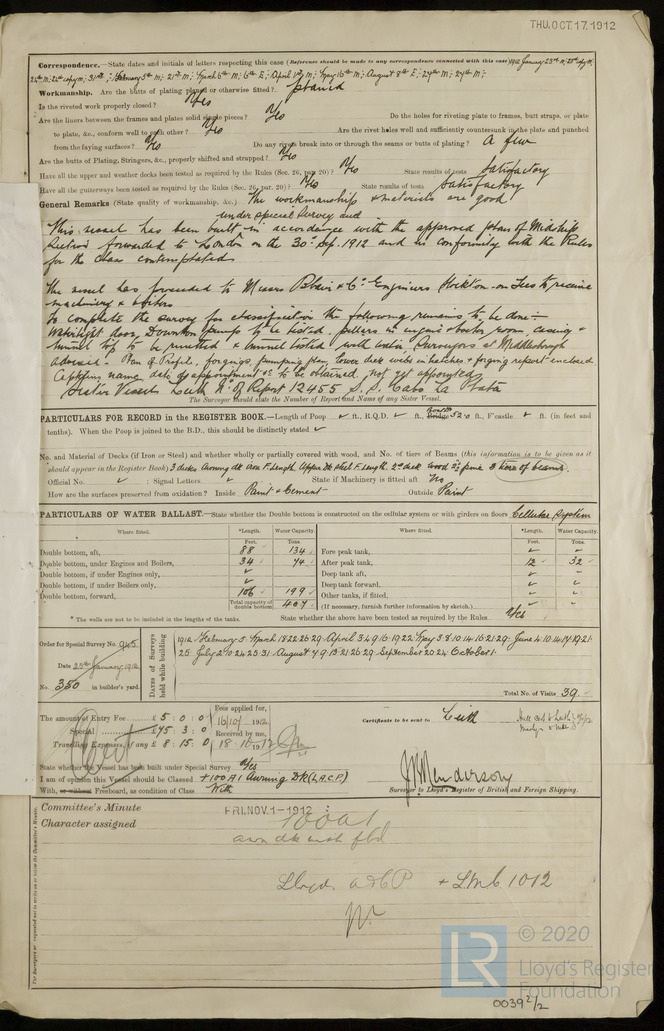 THU. OCT. 17. 1912
Correspondence.—State dates and initials of letters respecting this case (Reference should be made to any correspondence connected with this case) 1912 January 23rd
Workmanship. Are the butts of plating planed or otherwise fitted? planed
Is the riveted work properly closed? Yes
Are the liners between the frames and plates solid single pieces? Yes Do the holes for riveting plate to frames, butt straps, or plate
to plate, &c., conform well to each other? Yes Are the rivet holes well and sufficiently countersunk in the plate and punched
from the faying surfaces? Yes Do any rivets break into or through the seams or butts of plating? A few
Are the butts of Plating, Stringers, &c., properly shifted and strapped? Yes
Have all the upper and weather decks been tested as required by the Rules (Sec. 26, par. 20)? Yes State results of tests Satisfactory
Have all the gutterways been tested as required by the Rules (Sec. 26, par. 20)? Yes State results of tests Satisfactory
General Remarks (State quality of workmanship, &c.) The workmanship & materials are good
under special survey and
This vessel has been built in accordance with the approved plans of Midship
Section forwarded to London on the 30th Sep. 1912 and in conformity with the Rules
for the class contemplated
The vessel has proceeded to Messrs Blair & Co. Engineers Stockton-on-Tees to receive
machinery & boilers
To complete the survey for classification the following remains to be done:—
Watertight door, Downton pump to be tested. pillars in engine & boiler room, casing &
tunnel top to be riveted & tunnel tested with water. Surveyors at Middlesbrough
advised. Plan of Profile, forgings, pumping plan, lower deck webs in hatches & forging report enclosed
Captains name, date of appointment &c to be obtained, not yet appointed
Sister Vessel Leith No. of Report 12455 S.S. Cabo La Plata
The Surveyor should state the Number of Report and Name of any Sister Vessel.
PARTICULARS FOR RECORD in the REGISTER BOOK.—Length of Poop ✓ ft., R.Q.D. ✓ ft., Bridge 52.0 ft., F'castle ✓ ft. (in feet and
tenths). When the Poop is joined to the B.D., this should be distinctly stated ✓
No. and Material of Decks (if Iron or Steel) and whether wholly or partially covered with wood, and No. of tiers of Beams (this information is to be given as it
should appear in the Register Book) 3 decks Awning dk iron F.Length. Upper dk steel F.Length. 2nd deck wood pine 3 tiers of beams.
Official No. ✓ ; Signal Letters ✓ State if Machinery is fitted aft No
How are the surfaces preserved from oxidation? Inside Paint & Cement Outside Paint
PARTICULARS OF WATER BALLAST.—State whether the Double bottom is constructed on the cellular system or with girders on floors Cellular System
Where fitted. *Length. Water Capacity. Where fitted. *Length. Water Capacity.
Feet. Tons Feet. Tons.
Double bottom, aft, 88 134 Fore peak tank, ✓ ✓
Double bottom, under Engines and Boilers, 34 74 After peak tank, 12 32
Double bottom, if under Engines only, ✓ Deep tank aft, ✓ ✓
Double bottom, if under Boilers only, ✓ Deep tank forward, ✓ ✓
Double bottom, forward, 106 199 Other tanks, if fitted, ✓ ✓
Total capacity of double bottom 407 (If necessary, furnish further information by sketch.)
* The wells are not to be included in the lengths of the tanks. State whether the above have been tested as required by the Rules Yes
Order for Special Survey No. 945
Date 25th January 1912
No. 350 in builder's yard.
Dates of Surveys held while building
1912 February 5. March 18 22 26 29. April 3 4 9 16 19 22. May 3 8 10 14 16 21 29. June 4 10 14 17 19 21
25 July 2 10 24 25 31. August 7 9 13 21 26 29. September 20 24. October 1.
Total No. of Visits 39.
The amount of Entry Fee £ 5 : 0 : 0
Special £ 95 : 3 : 0
Travelling Expenses, if any £ 8 : 15 : 0
Fees applied for,
16/10/1912
Received by me,
18-10-1912
Certificate to be sent to Leith
State whether the Vessel has been built under Special Survey Yes
I am of opinion this Vessel should be Classed +100 A1 Awning Dk (L.A.C.P.)
With, or without Freeboard, as condition of Class With
Surveyor to Lloyd's Register of British and Foreign Shipping.
Committee's Minute FRI. NOV. 1-1912
Character assigned 100A1
awn dk with fbd
Lloyds A&CP + LMC 10 12
LR
© 2020
Lloyd's Register
Foundation
0039 2/2